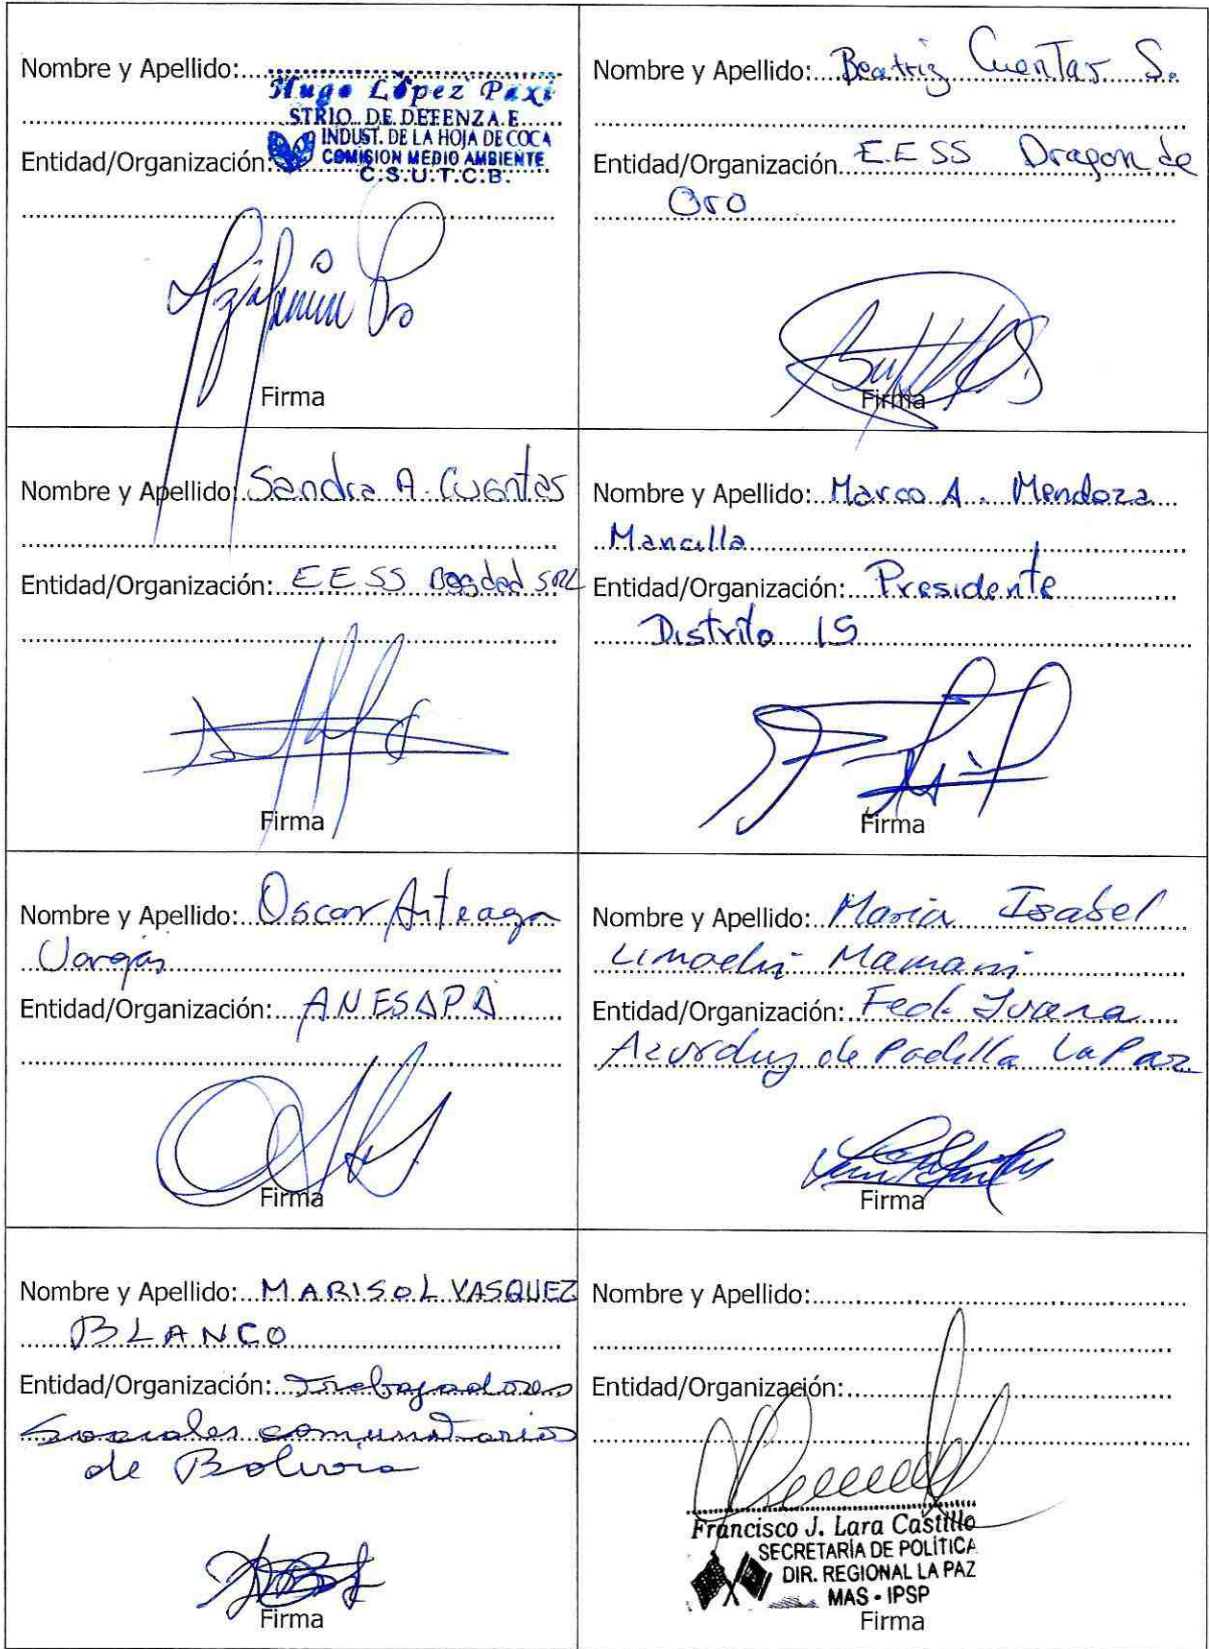 Nombre y Apellido:
Hugo López Paxi
STRIO. DE DEFENZA E
INDUST. DE LA HOJA DE COCA
Entidad/Organización
COMISION MEDIO AMBIENTE
C.S.U.T.C.B.
Firma
Nombre y Apellido: Beatriz Cuentas S.
Entidad/Organización E.E SS Dragon de
Oro
Firma
Nombre y Apellido: Sandra A. Cuentas
Entidad/Organización: EESS Bagdad SRL
Firma
Nombre y Apellido: Marco A. Mendoza
Mancilla
Entidad/Organización: Presidente
Distrito 15
Firma
Nombre y Apellido: Oscar Arteaga
Vargas
Entidad/Organización: ANESAPA
Firma
Nombre y Apellido: Maria Isabel
Limachi Mamani
Entidad/Organización: Fed. Juana
Azurduy de Padilla La Paz
Firma
Nombre y Apellido: MARISOL VASQUEZ
BLANCO
Entidad/Organización: Trabajadores
Sociales comunitarios
de Bolivia
Firma
Nombre y Apellido:
Entidad/Organización:
Francisco J. Lara Castillo
SECRETARÍA DE POLÍTICA
DIR. REGIONAL LA PAZ
MAS - IPSP
Firma